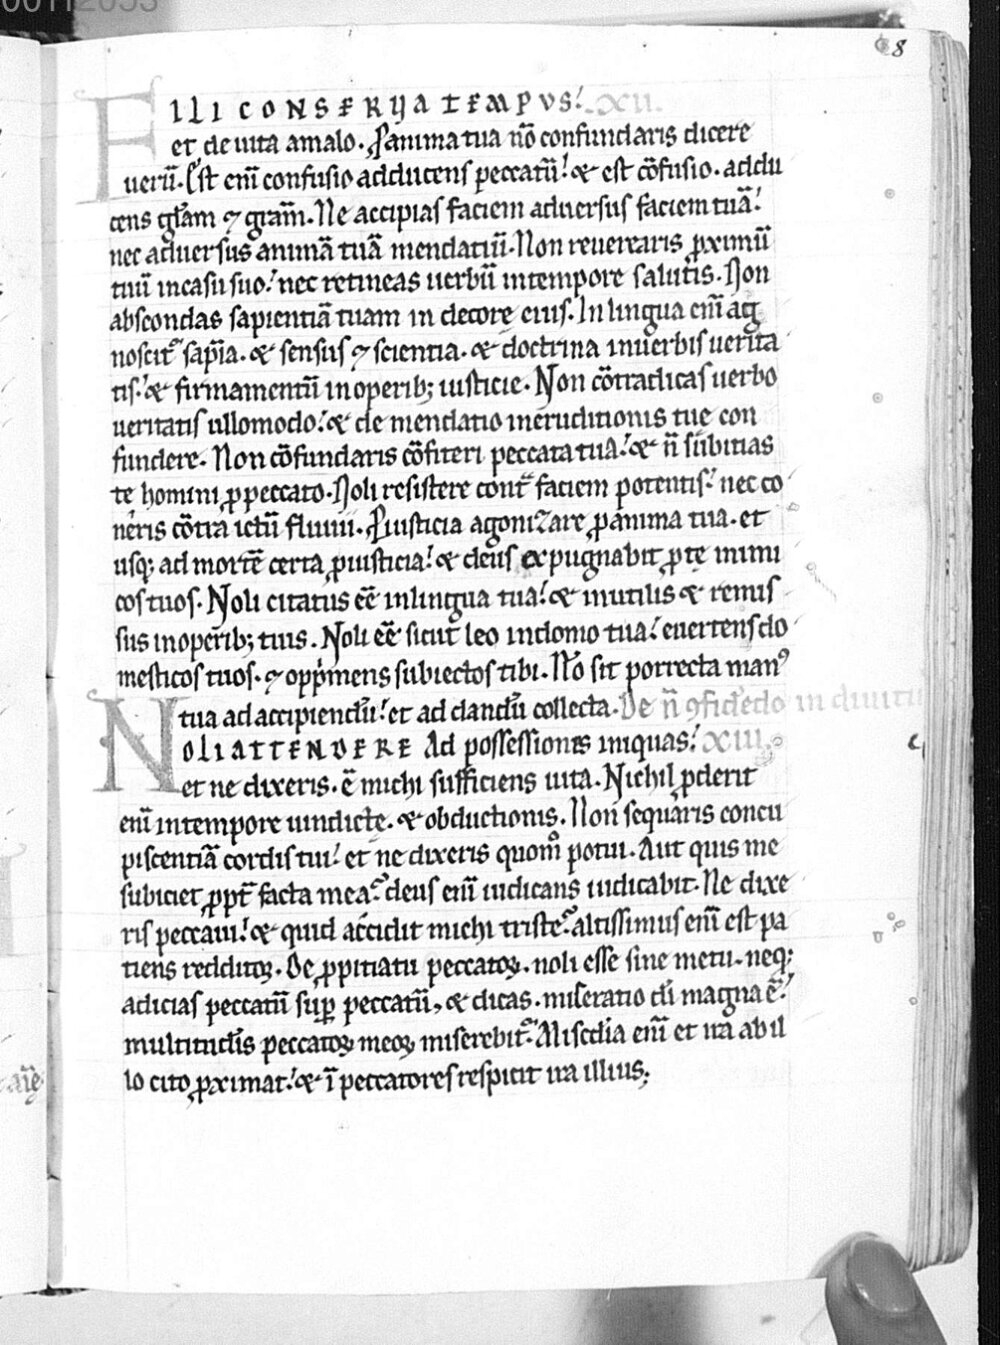 00112053
8
FILI CONSERUA TEMPUS! XII.
et deuita amalo. ꝓanima tua nō confundaris dicere
uerū. Est enī confusio adducens peccatū! & est cōfusio. addu
cens gl̄am ⁊ grām. Ne accipias faciem aduersus faciem tuā!
nec aduersus animā tuā mendatiū. Non reuerearis ꝓximū
tuū incasu suo! nec retineas uerbū intempore salutis. Non
abscondas sapientiā tuam in decore eius. In lingua enī ag
noscit᷑ sap̄ia. & sensus ⁊ scientia. & doctrina inuerbis uerita
tis! & firmamentū inoperib; iusticie. Non cōtradicas uerbo
ueritatis ullomodo! & de mendatio ineruditionis tuę con
fundere. Non cōfundaris cōfiteri peccata tua! & n̄ subitias
te homini ꝓpeccato. Noli resistere cont᷑ faciem potentis! nec co
neris cōtra ictū fluuii. ꝓiusticia agonizare ꝓanima tua. et
usq; ad mortē certa ꝓiusticia! & deus expugnabit ꝓte inimi
cos tuos. Noli citatus eē inlingua tua! & inutilis & remis
sus inoperib; tuis. Noli eē sicut leo indomo tua! euertens do
mesticos tuos. ⁊ opp̍mens subiectos tibi. Nō sit porrecta manꝰ
tua ad accipiendū! et ad dandū collecta. De n̄ ꝯfidēdo in diuitii
NOLI ATTENDERE Ad possessiones iniquas! XIII.
et ne dixeris. ē michi sufficiens uita. Nichil ꝓderit
enī intempore uindictę. & obductionis. Non sequaris concu
piscentiā cordis tui! et ne dixeris quom̊ potui. Aut quis me
subiciet ꝓpt᷑ facta mea? deus enī iudicans iudicabit. Ne dixe
ris peccaui! & quid accidit michi triste? altissimus enī est pa
tiens redditoꝝ. De ꝓpitiatu peccatoꝝ. noli esse sine metu. neq;
adicias peccatū suꝑ peccatū, & dicas. miseratio dī magna ē!
multitudīs peccatoꝝ meoꝝ miserebit᷑. Misc̄dia enī et ira ab il
lo cito ꝓximat! & ī peccatores respicit ira illius;